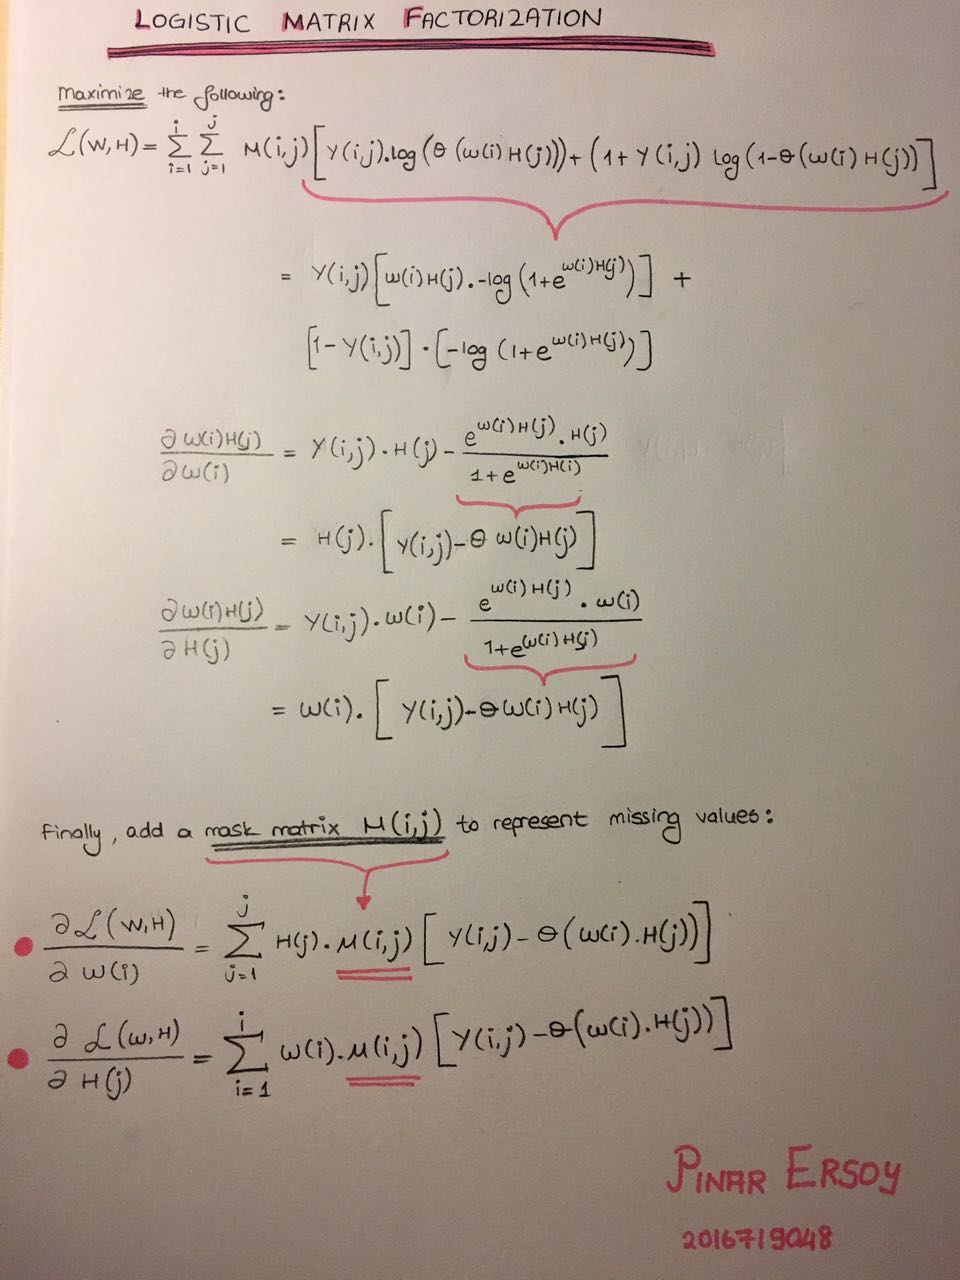 LOGISTIC MATRIX FACTORIZATION
Maximize the following:
ℒ(W,H) = Σ_{i=1}^{i} Σ_{j=1}^{j} M(i,j) [Y(i,j).log(θ(w(i)H(j))) + (1+Y(i,j) log(1-θ(w(i)H(j))]
= Y(i,j)[w(i)H(j).-log(1+e^{w(i)H(j)})] +
[1-Y(i,j)]·[-log(1+e^{w(i)H(j)})]
∂w(i)H(j)/∂w(i) = Y(i,j)·H(j) - e^{w(i)H(j)}·H(j)/1+e^{w(i)H(i)}
= H(j).[Y(i,j)-θ w(i)H(j)]
∂w(i)H(j)/∂H(j) = Y(i,j)·w(i) - e^{w(i)H(j)}·w(i)/1+e^{w(i)H(j)}
= w(i).[Y(i,j)-θw(i)H(j)]
Finally, add a mask matrix M(i,j) to represent missing values:
∂ℒ(W,H)/∂w(i) = Σ_{j=1}^{j} H(j).M(i,j)[Y(i,j)-θ(w(i).H(j))]
∂ℒ(W,H)/∂H(j) = Σ_{i=1}^{i} w(i).M(i,j)[Y(i,j)-θ(w(i).H(j))]
PINAR ERSOY
2016719048